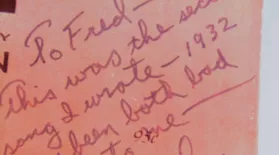 To Fred—
This was the sec
song I wrote—1932
been both bad
to me—